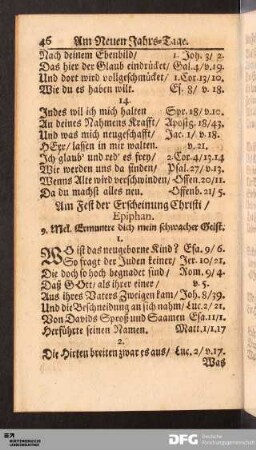 46 Am Neuen Jahrs-Tage.
Nach deinem Ebenbild/ 1. Joh. 3/ 2.
Das hier der Glaub eindrücket/ Gal. 4/ v. 19.
Und dort wird vollgeschmücket/ 1. Cor. 13/ 10.
Wie du es haben wilt. Es. 8/ v. 18.
14.
Indes wil ich mich halten Spr. 18/ v. 10.
An deines Nahmens Krafft/ Aposlg. 18/ 43.
Und was mich neugeschafft/ Jac. 1/ v. 18.
HErr/ lassen in mir walten. v. 21.
Ich glaub' und red' es frey/ 2. Cor. 4/ 13. 14
Wir werden uns da finden/ Psal. 27/ v. 13.
Wenns Alte wird verschwinden/ Offen. 20/ 11.
Da du machst alles neu. Offenb. 21/ 5.
Am Fest der Erscheinung Christi/
Epiphan.
9. Mel. Ermuntre dich mein schwacher Geist.
1.
WO ist das neugeborne Kind? Esa. 9/ 6.
So fragt der Juden keiner/ Jer. 10/ 21.
Die doch so hoch begnadet sind/ Rom. 9/ 4.
Daß GOtt/ als ihrer einer/ v. 5.
Aus ihres Vaters Zweigen kam/ Joh. 8/ 39.
Und die Beschneidung an sich nahm/ Luc. 2/ 21.
Von Davids Sproß und Saamen Esa. 11/ 1.
Herführte seinen Namen. Matt. 1/ 1. 17
2.
Die Hirten breiten zwar es aus/ Luc. 2/ v. 17.
Was
DFG Deutsche
Forschungsgemeinschaft